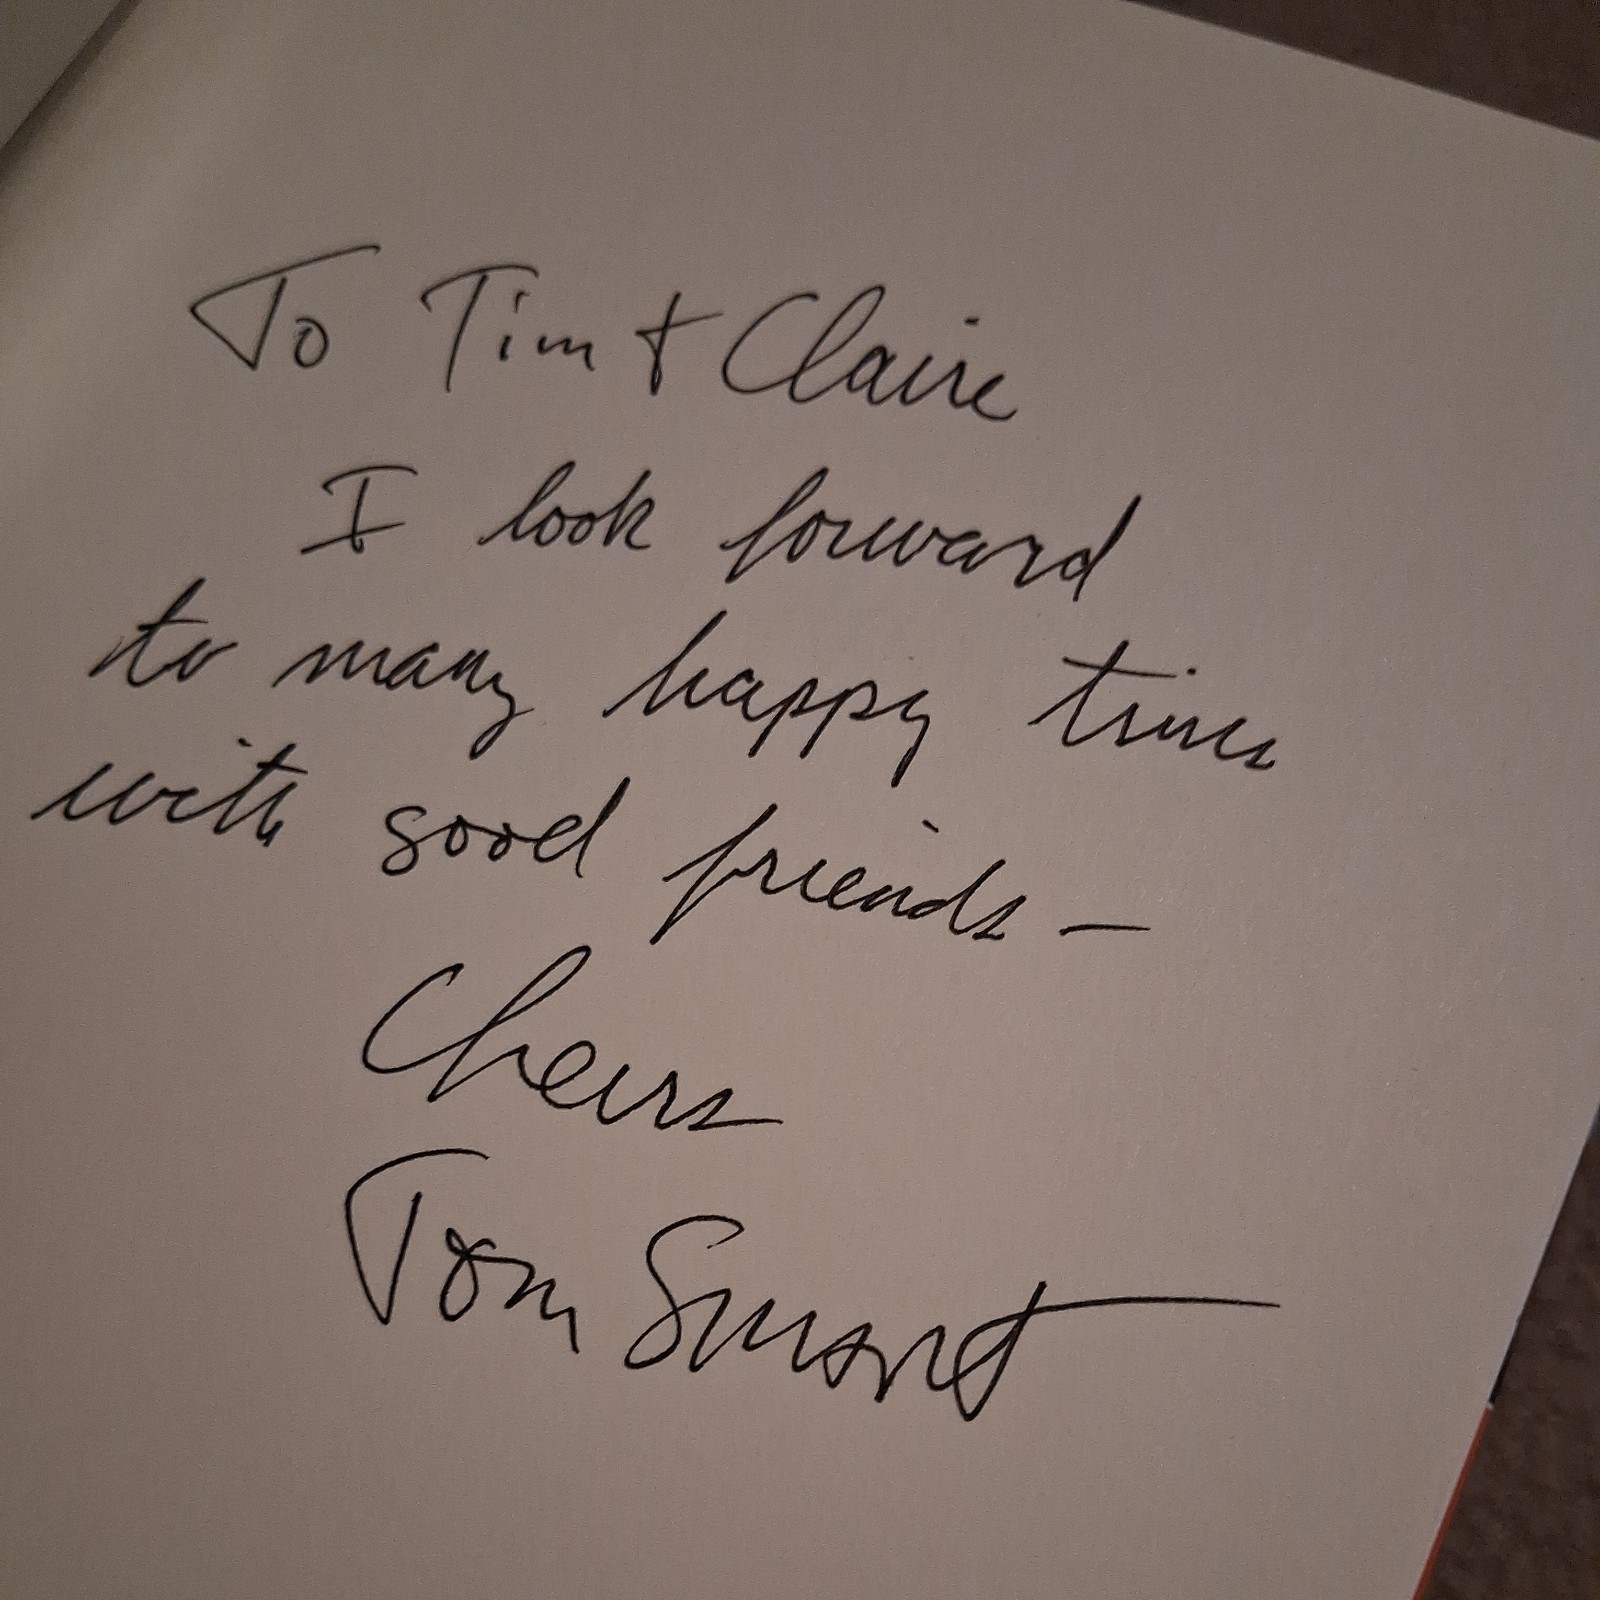 To Tim + Claire
I look forward
to many happy times
with good friends –
Cheers
Tom Smart